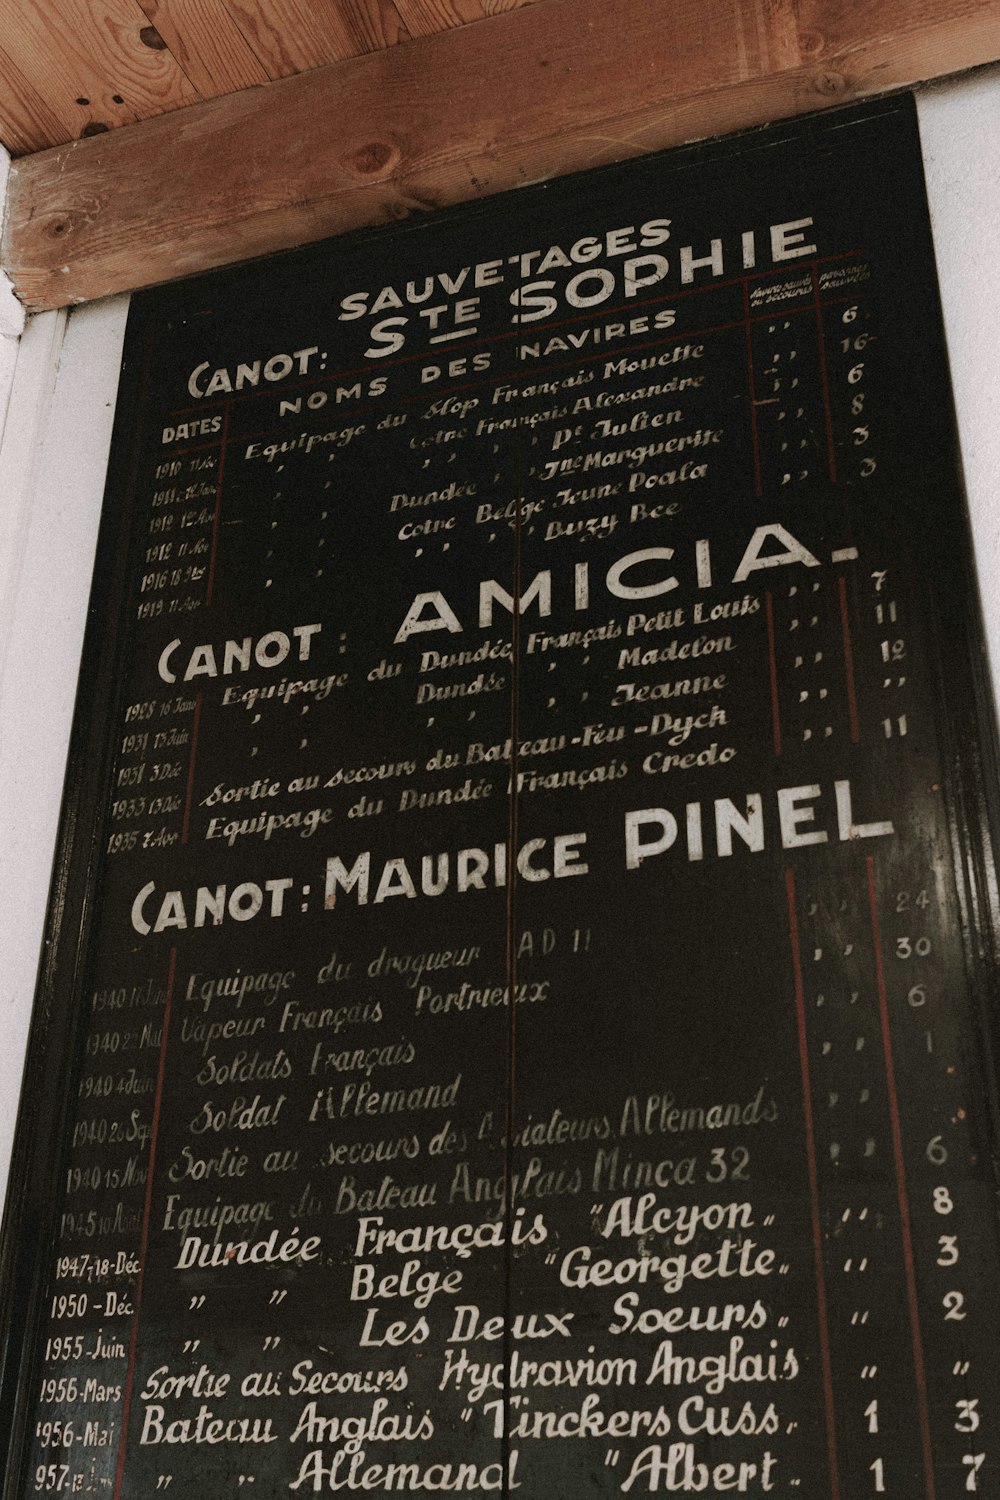 SAUVETAGES
CANOT: STE SOPHIE
DATES NOMS DES NAVIRES personnes sauvées
1910 11 Nov Equipage du Slop Français Mouette ,, 6
1911 Cotre Français Alexandre ,, 16
1912 ,, ,, Dt Julien ,, 6
1912 11 Nov Dundée ,, Jne Marguerite ,, 8
1916 18 Cotre Belge Jeune Poala ,, 3
1919 11 ,, ,, Buzy Bee ,, 3
CANOT: AMICIA
1928 16 Jan Equipage du Dundée Français Petit Louis ,, 7
1931 13 Juin ,, ,, Dundée ,, Madelon ,, 11
1931 3 Déc ,, ,, ,, ,, Jeanne ,, 12
1933 13 Sortie au secours du Bateau-Feu-Dyck ,, ,,
1935 Equipage du Dundée Français Credo ,, 11
CANOT: MAURICE PINEL
1940 Equipage du dragueur AD 11 ,, 24
1940 22 Mai Vapeur Français Portrieux ,, 30
1940 4 Juin Soldats Français ,, 6
1940 Soldat Allemand ,, 1
1940 15 Sortie au secours des Aviateurs Allemands ,,
1945 Equipage du Bateau Anglais Minca 32 ,, 6
1947-18-Déc. Dundée Français "Alcyon" ,, 8
1950-Déc. ,, ,, Belge "Georgette" ,, 3
1955-Juin ,, ,, Les Deux Soeurs" ,, 2
1956-Mars Sortie au Secours Hydravion Anglais ,, ,,
1956-Mai Bateau Anglais "TinckersCuss" 1 3
957- ,, ,, Allemand "Albert" 1 7